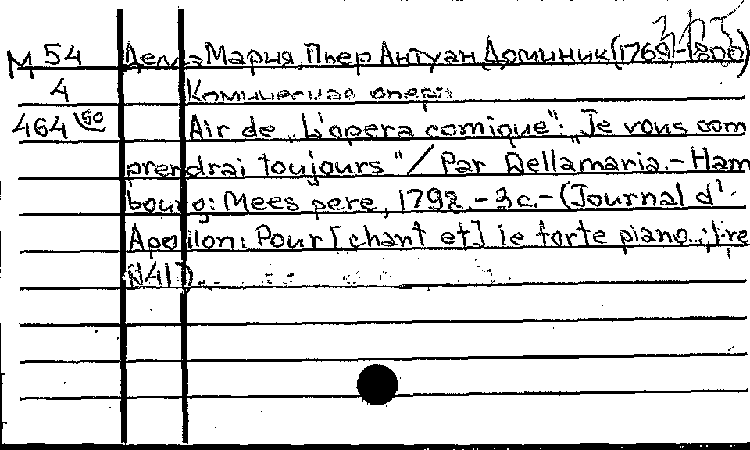 М 54 Делла Мария, Пьер Антуан Доминик (1769-1800)
4 Комическая опера
464 150 Air de „L'opera comique": „Je vous com
prendrai toujours" / Par Dellamaria. - Ham
bourg: Mees pere, 1798. - 3 c. - (Journal d'
Apollon: Pour [chant et] le forte piano;
N41).